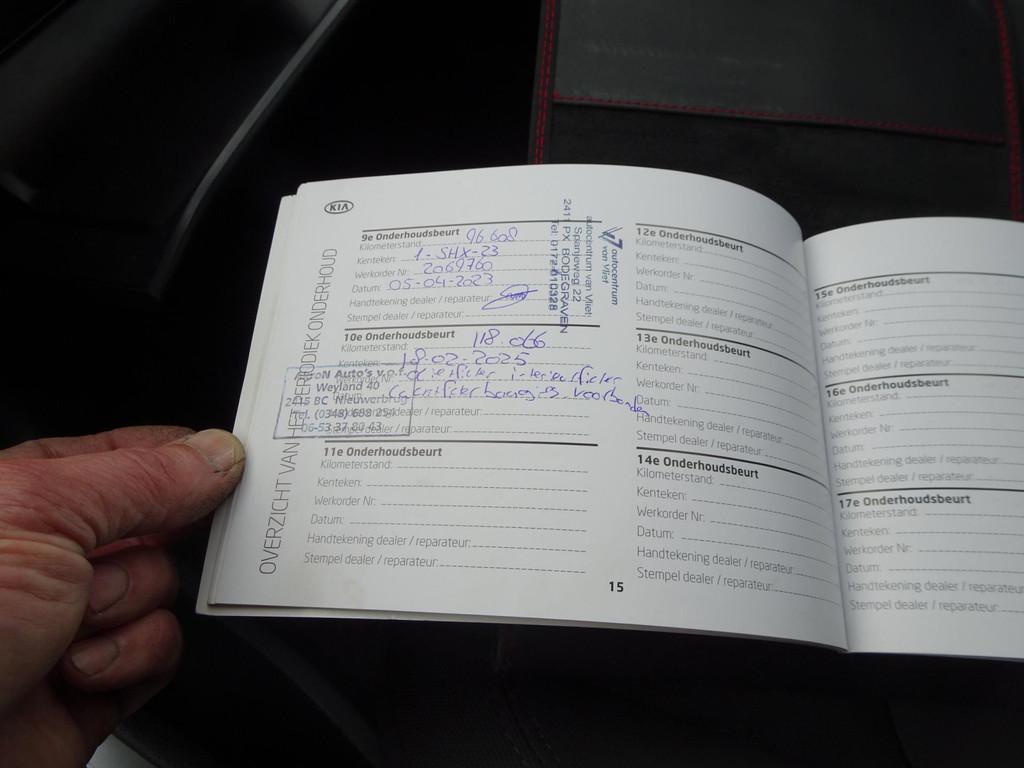 KIA
OVERZICHT VAN HET PERIODIEK ONDERHOUD
9e Onderhoudsbeurt
Kilometerstand: 96608
Kenteken: 1-SHX-23
Werkorder Nr: 2069760
Datum: 05-04-2023
Handtekening dealer / reparateur:
Stempel dealer / reparateur:
autocentrum
van Vliet
autocentrum van Vliet
Spanjeweg 22
2411 PX BODEGRAVEN
Tel: 0172-610328
10e Onderhoudsbeurt
Kilometerstand: 118.066
Kenteken: 18-02-2025
Datum:
Handtekening dealer / reparateur:
Stempel dealer / reparateur:
Auto's v.o.f.
Weyland 40
2415 BC Nieuwerbrug
Tel. (0348) 688 254
06-53 37 80 43
11e Onderhoudsbeurt
Kilometerstand:
Kenteken:
Werkorder Nr:
Datum:
Handtekening dealer / reparateur:
Stempel dealer / reparateur:
15
12e Onderhoudsbeurt
Kilometerstand:
Kenteken:
Werkorder Nr:
Datum:
Handtekening dealer / reparateur:
Stempel dealer / reparateur:
13e Onderhoudsbeurt
Kilometerstand:
Kenteken:
Werkorder Nr:
Datum:
Handtekening dealer / reparateur:
Stempel dealer / reparateur:
14e Onderhoudsbeurt
Kilometerstand:
Kenteken:
Werkorder Nr:
Datum:
Handtekening dealer / reparateur:
Stempel dealer / reparateur:
15e Onderhoudsbeurt
Kilometerstand:
Kenteken:
Werkorder Nr:
Datum:
Handtekening dealer / reparateur:
Stempel dealer / reparateur:
16e Onderhoudsbeurt
Kilometerstand:
Kenteken:
Werkorder Nr:
Datum:
Handtekening dealer / reparateur:
Stempel dealer / reparateur:
17e Onderhoudsbeurt
Kilometerstand:
Kenteken:
Werkorder Nr:
Datum:
Handtekening dealer / reparateur:
Stempel dealer / reparateur: